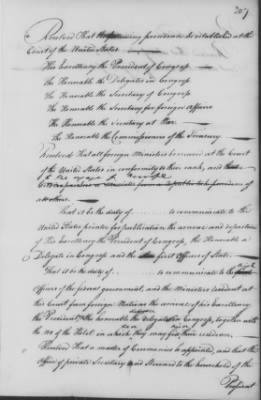 207
Resolved That the following precedence be established at the
Court of the United States.
His Excellency the President of Congress
the Honorable the Delegates in Congress
the Honorable the Secretary of Congress
the Honorable the Secretary for foreign Affairs
the Honorable the Secretary at War
the Honorable the Commissioners of the Treasury
Resolved That all foreign Ministers be received at the Court
of the United States in conformity to their rank, and
That it be the duty of to communicate to the
United States printer for publication the arrival and departure
of his Excellency the President of Congress, the Honorable a
Delegate in Congress and the first Officers of State.
That it be the duty of to communicate to the
Officers of the federal government, and the Ministers resident at
this Court from foreign Nations the arrival of his Excellency
the President, the honorable the delegates in Congress, together with
the No of the Hotel in which they may fix their residence.
Resolved That a master of Ceremonies be appointed, and that the
Office of private Secretary and Steward to the household of the
President